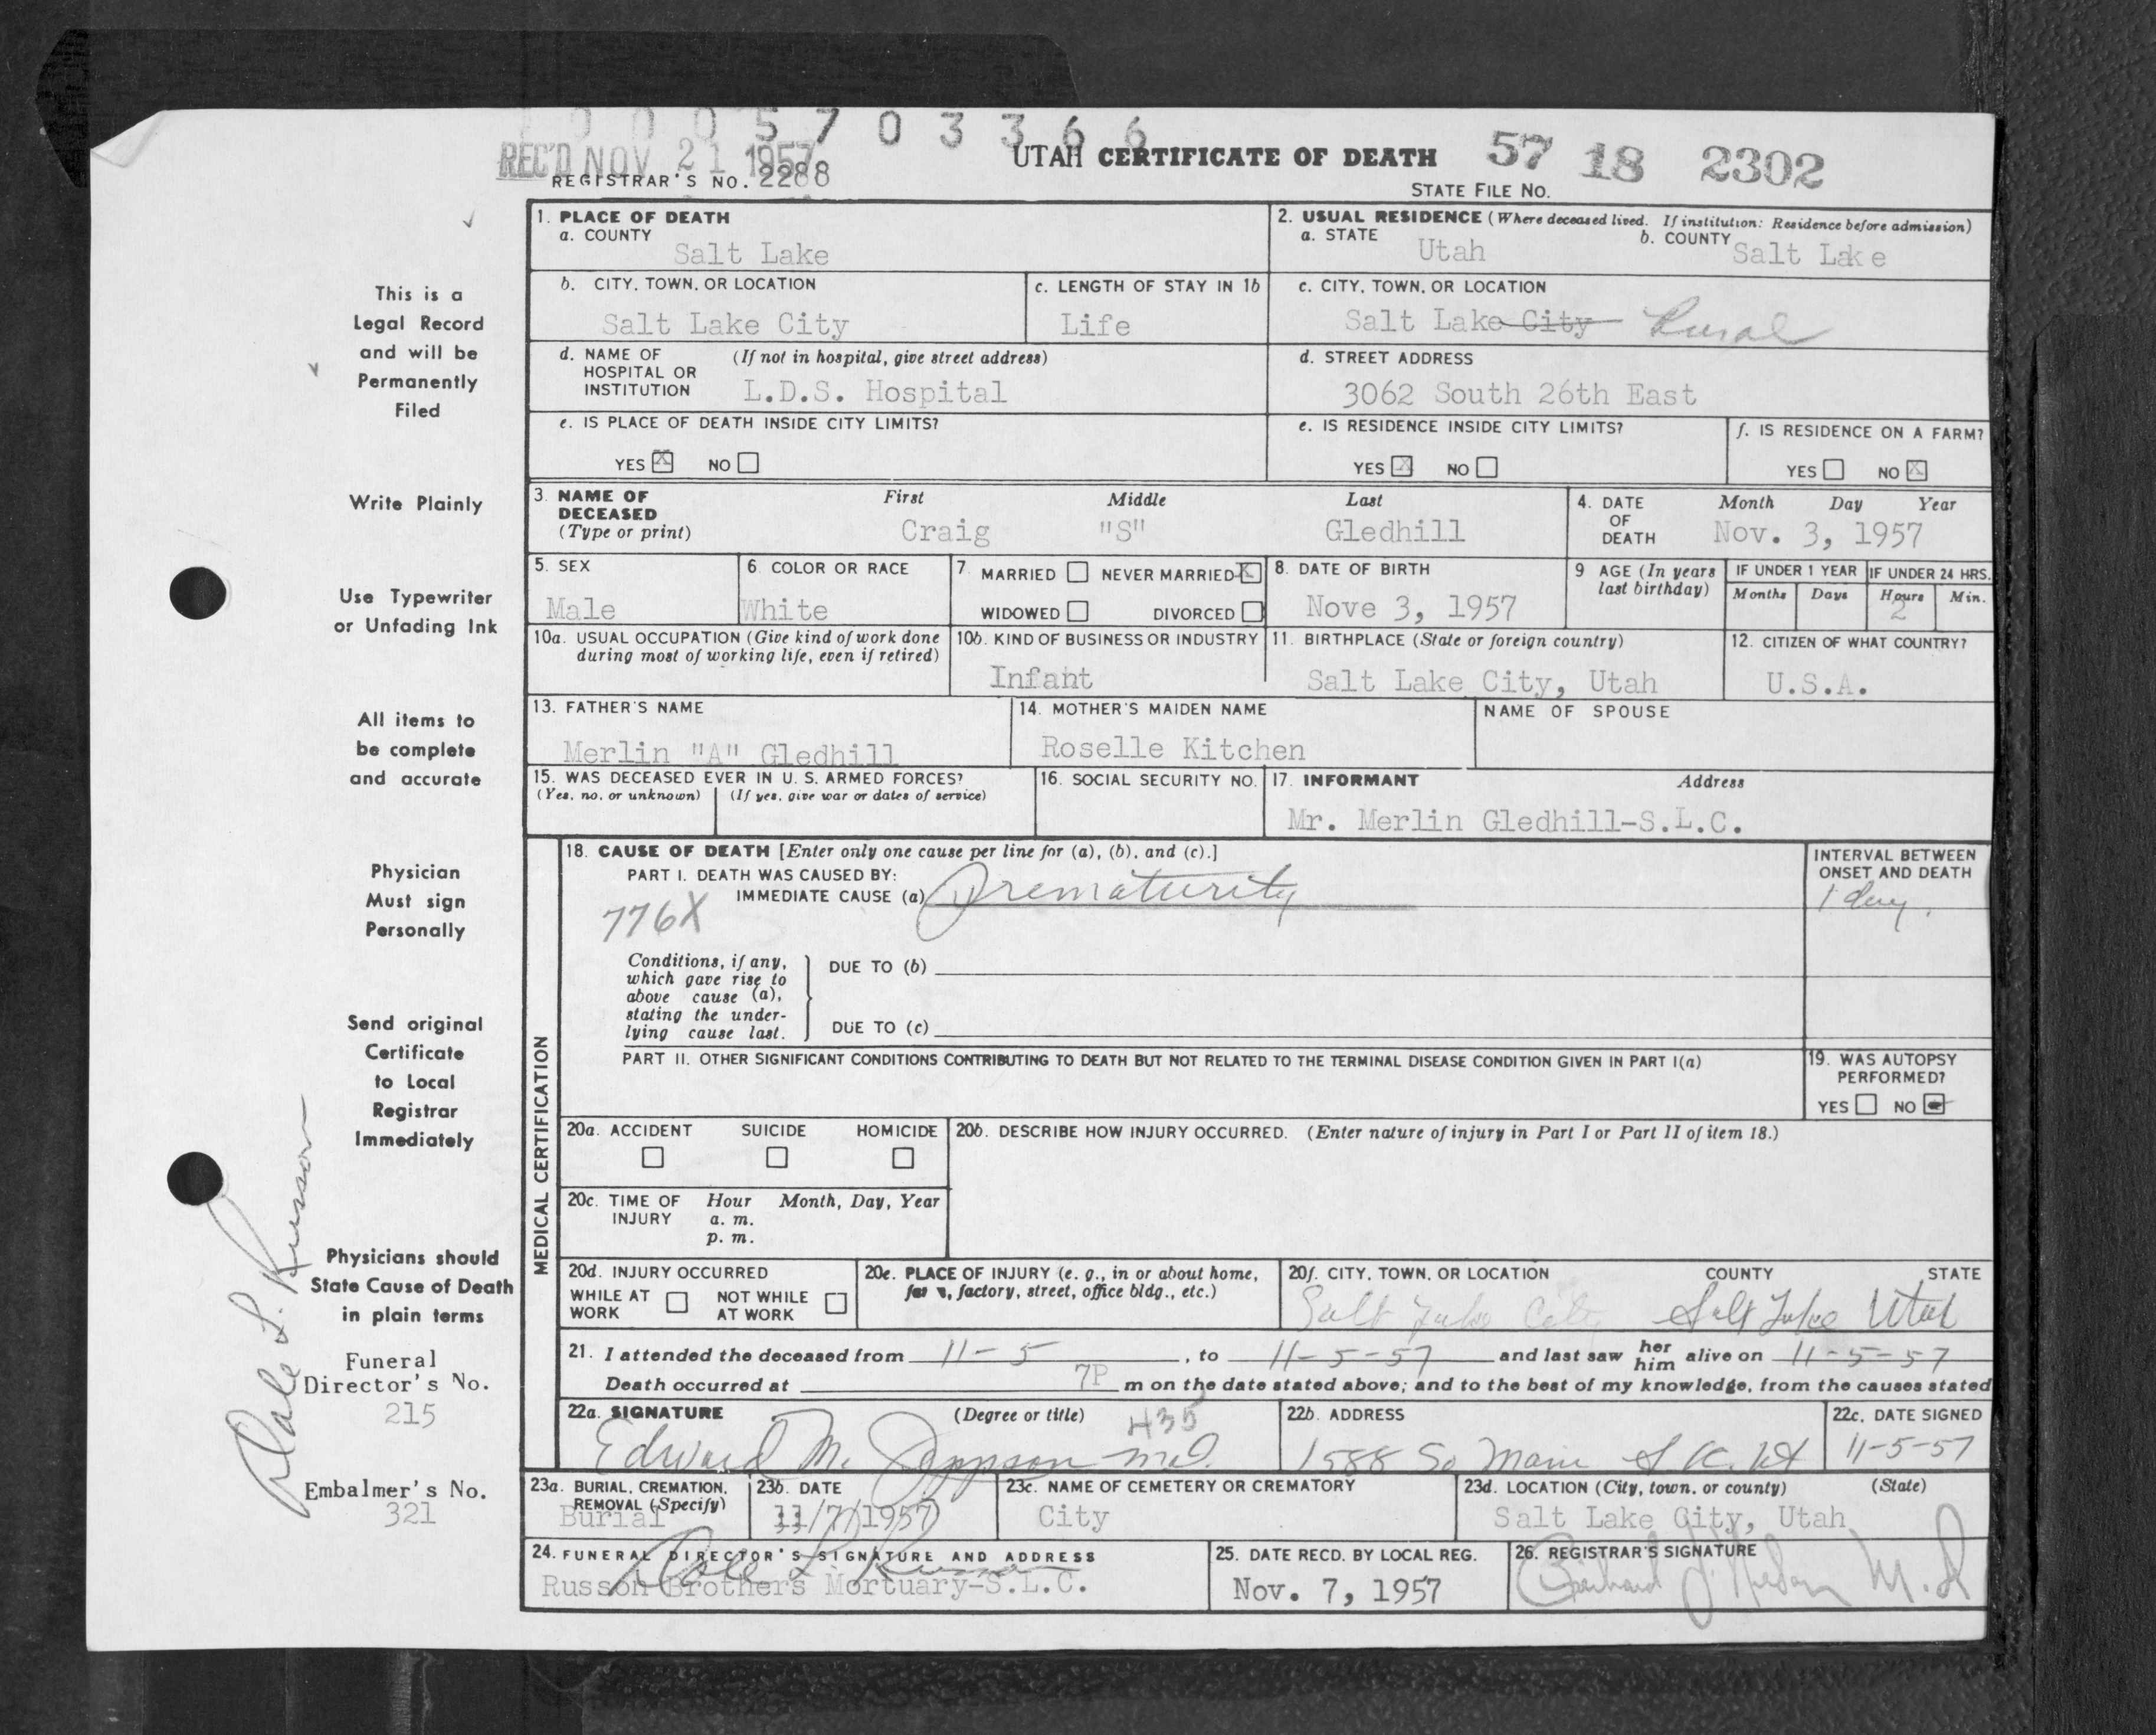 0 0 0 5 7 0 3 3 6 6
REC'D NOV 21 1957
REGISTRAR'S NO. 2288
UTAH CERTIFICATE OF DEATH 57 18 2302
STATE FILE NO.
1. PLACE OF DEATH
a. COUNTY
Salt Lake
2. USUAL RESIDENCE (Where deceased lived. If institution: Residence before admission)
a. STATE Utah b. COUNTY Salt Lake
b. CITY, TOWN, OR LOCATION
Salt Lake City
c. LENGTH OF STAY IN 1b
Life
c. CITY, TOWN, OR LOCATION
Salt Lake City Rural
d. NAME OF HOSPITAL OR INSTITUTION (If not in hospital, give street address)
L.D.S. Hospital
d. STREET ADDRESS
3062 South 26th East
e. IS PLACE OF DEATH INSIDE CITY LIMITS?
YES X NO
e. IS RESIDENCE INSIDE CITY LIMITS?
YES X NO
f. IS RESIDENCE ON A FARM?
YES NO X
3. NAME OF DECEASED (Type or print)
First Middle Last
Craig "S" Gledhill
4. DATE OF DEATH Month Day Year
Nov. 3, 1957
5. SEX
Male
6. COLOR OR RACE
White
7. MARRIED NEVER MARRIED X
WIDOWED DIVORCED
8. DATE OF BIRTH
Nove 3, 1957
9 AGE (In years last birthday)
IF UNDER 1 YEAR
Months Days
IF UNDER 24 HRS.
Hours Min.
2
10a. USUAL OCCUPATION (Give kind of work done during most of working life, even if retired)
10b. KIND OF BUSINESS OR INDUSTRY
Infant
11. BIRTHPLACE (State or foreign country)
Salt Lake City, Utah
12. CITIZEN OF WHAT COUNTRY?
U.S.A.
13. FATHER'S NAME
Merlin "A" Gledhill
14. MOTHER'S MAIDEN NAME
Roselle Kitchen
NAME OF SPOUSE
15. WAS DECEASED EVER IN U. S. ARMED FORCES?
(Yes, no, or unknown) (If yes, give war or dates of service)
16. SOCIAL SECURITY NO.
17. INFORMANT Address
Mr. Merlin Gledhill-S.L.C.
MEDICAL CERTIFICATION
18. CAUSE OF DEATH [Enter only one cause per line for (a), (b), and (c).]
PART I. DEATH WAS CAUSED BY:
IMMEDIATE CAUSE (a) Prematurity
776X
INTERVAL BETWEEN
ONSET AND DEATH
1 day.
Conditions, if any,
which gave rise to
above cause (a),
stating the under-
lying cause last.
DUE TO (b)
DUE TO (c)
PART II. OTHER SIGNIFICANT CONDITIONS CONTRIBUTING TO DEATH BUT NOT RELATED TO THE TERMINAL DISEASE CONDITION GIVEN IN PART I(a)
19. WAS AUTOPSY
PERFORMED?
YES NO
20a. ACCIDENT SUICIDE HOMICIDE
20b. DESCRIBE HOW INJURY OCCURRED. (Enter nature of injury in Part I or Part II of item 18.)
20c. TIME OF INJURY Hour Month, Day, Year
a. m.
p. m.
20d. INJURY OCCURRED
WHILE AT WORK NOT WHILE AT WORK
20e. PLACE OF INJURY (e. g., in or about home,
factory, street, office bldg., etc.)
20f. CITY, TOWN, OR LOCATION COUNTY STATE
Salt Lake City Salt Lake Utah
21. I attended the deceased from 11-5, to 11-5-57 and last saw her him alive on 11-5-57
Death occurred at 7P m on the date stated above; and to the best of my knowledge, from the causes stated
22a. SIGNATURE (Degree or title) 435
Edward M. Jeppson M.D.
22b. ADDRESS
1588 So Main
22c. DATE SIGNED
11-5-57
23a. BURIAL, CREMATION, REMOVAL (Specify)
Burial
23b. DATE
11/7/1957
23c. NAME OF CEMETERY OR CREMATORY
City
23d. LOCATION (City, town, or county) (State)
Salt Lake City, Utah
24. FUNERAL DIRECTOR'S SIGNATURE AND ADDRESS
Dale L. Russon
Russon Brothers Mortuary-S.L.C.
25. DATE RECD. BY LOCAL REG.
Nov. 7, 1957
26. REGISTRAR'S SIGNATURE
M.D
This is a
Legal Record
and will be
Permanently
Filed
Write Plainly
Use Typewriter
or Unfading Ink
All items to
be complete
and accurate
Physician
Must sign
Personally
Send original
Certificate
to Local
Registrar
Immediately
Physicians should
State Cause of Death
in plain terms
Funeral
Director's No.
215
Embalmer's No.
321
Dale L. Russon